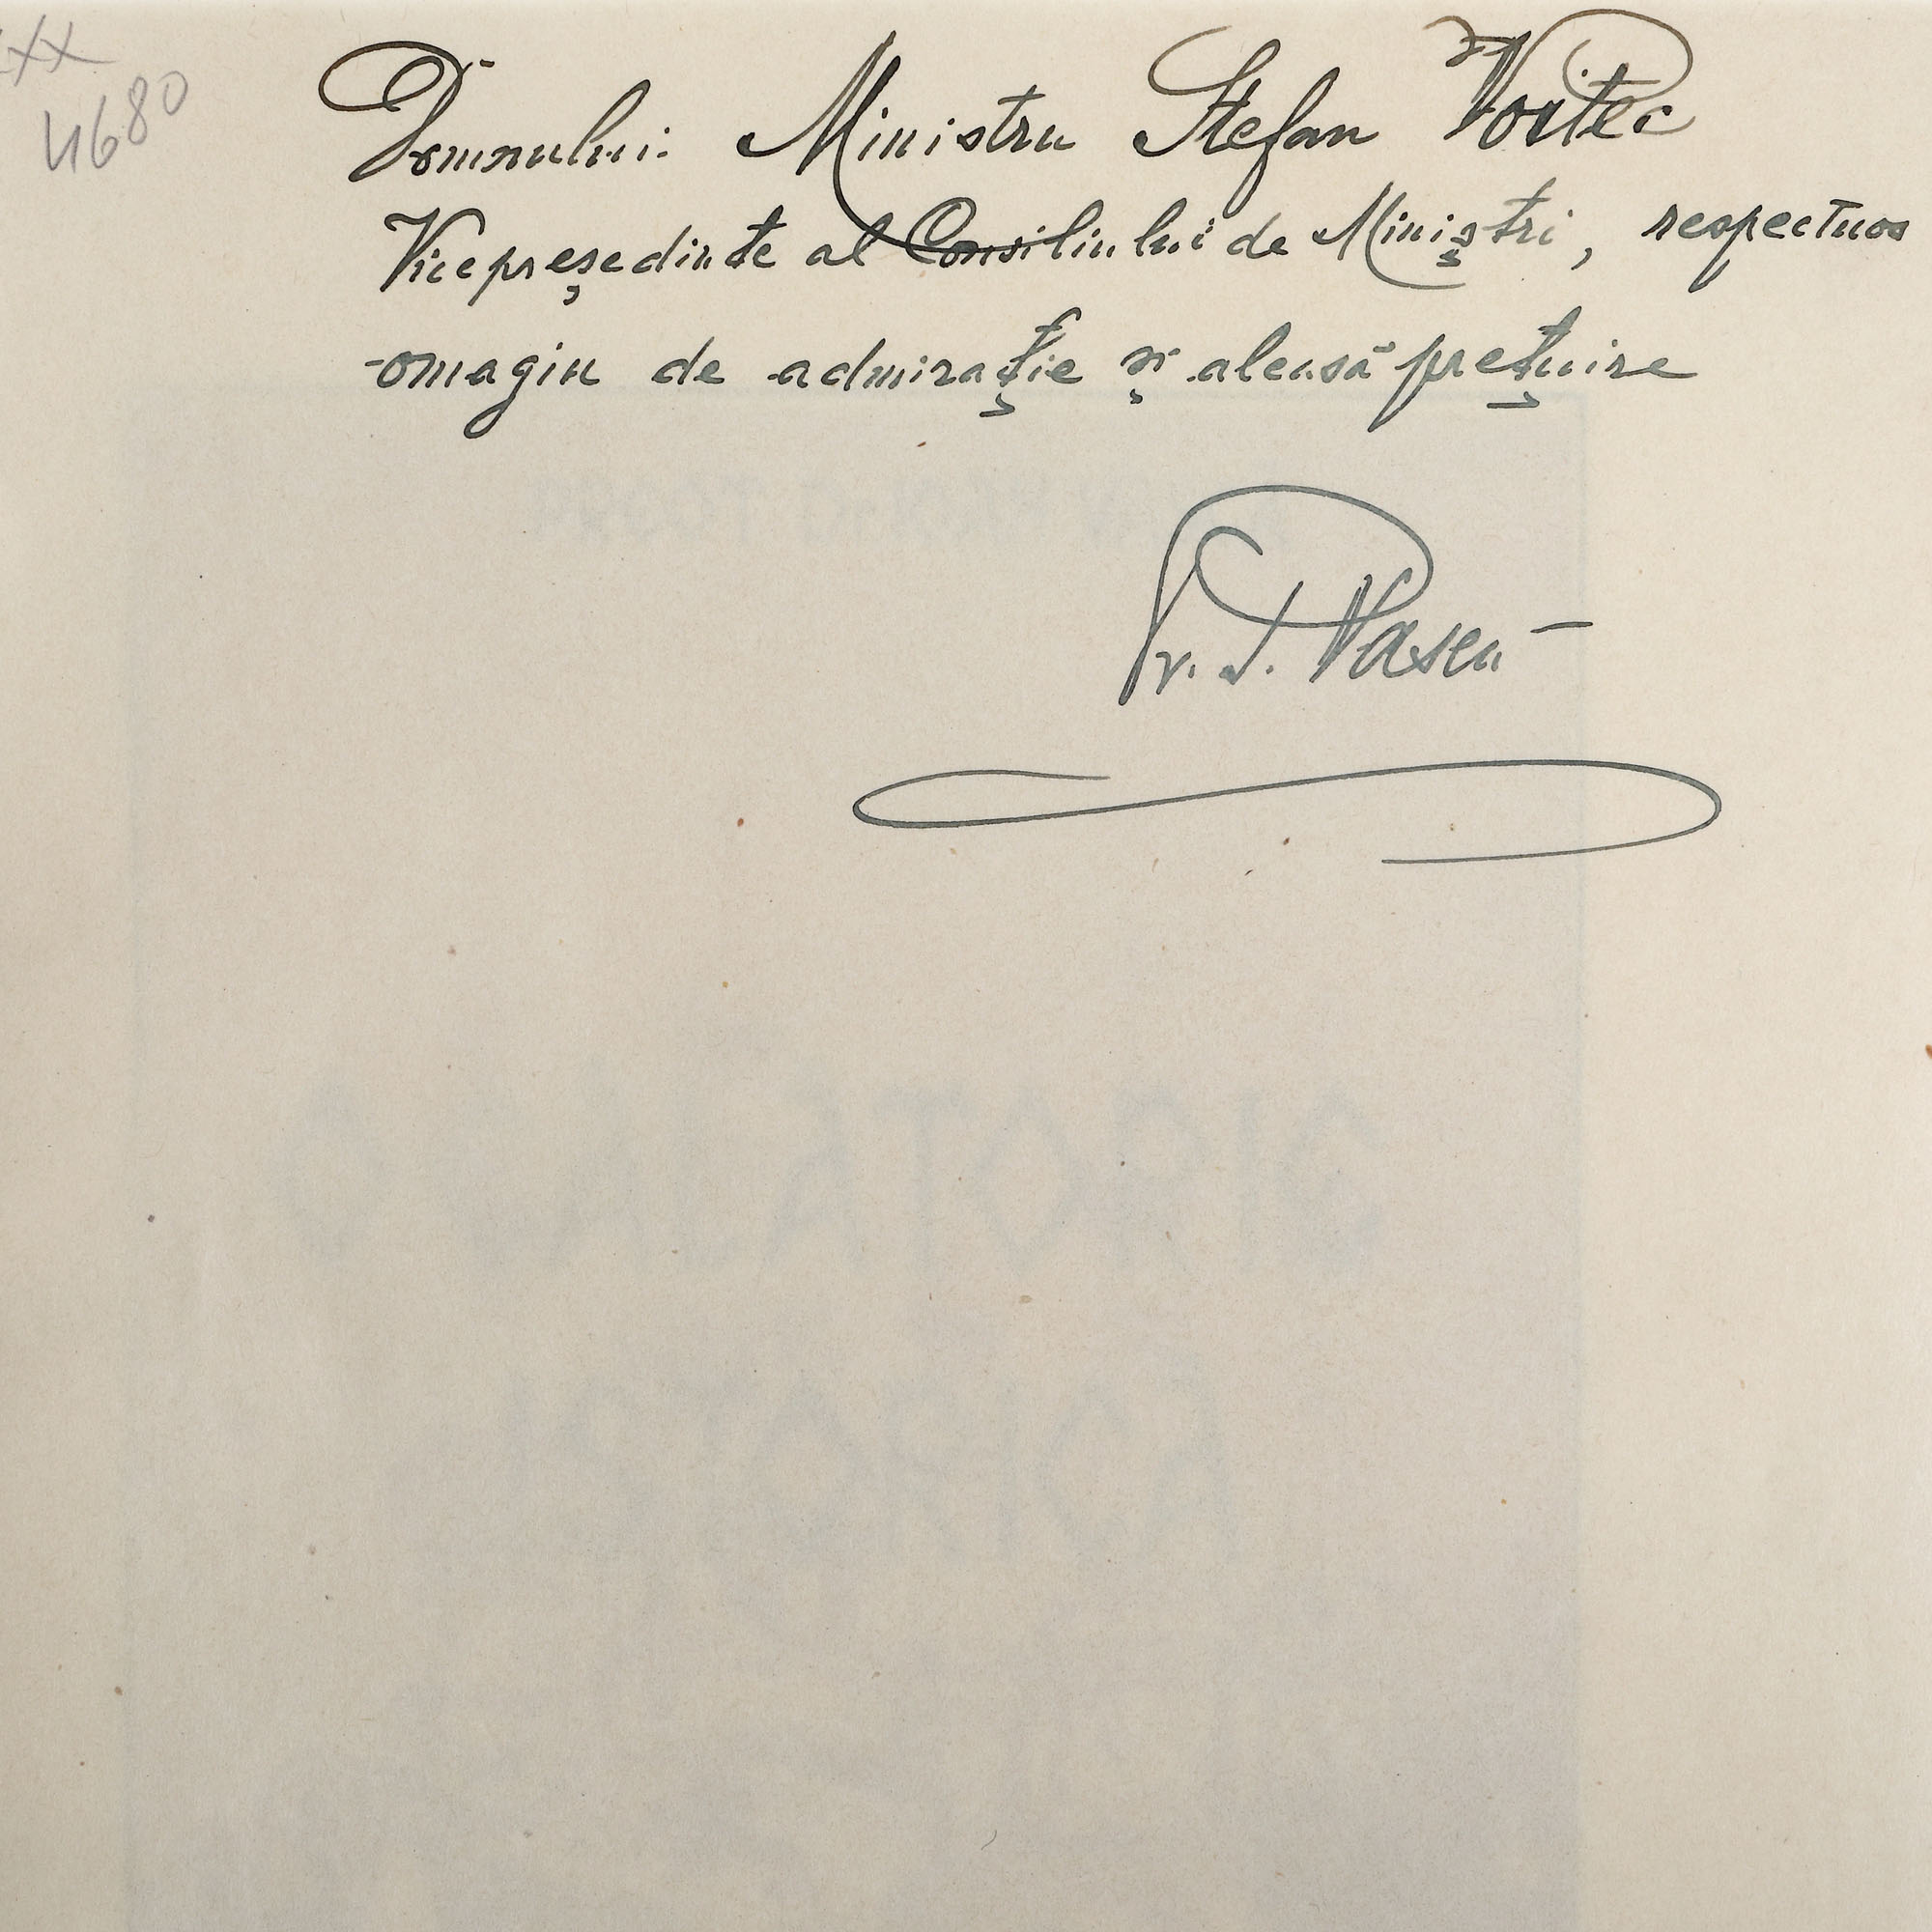 XX
4680
Domnului Ministru Stefan Voitec
Vicepreşedinte al Consiliului de Miniştri, respectuos
omagiu de admiraţie şi aleasă preţuire
Pr. I.